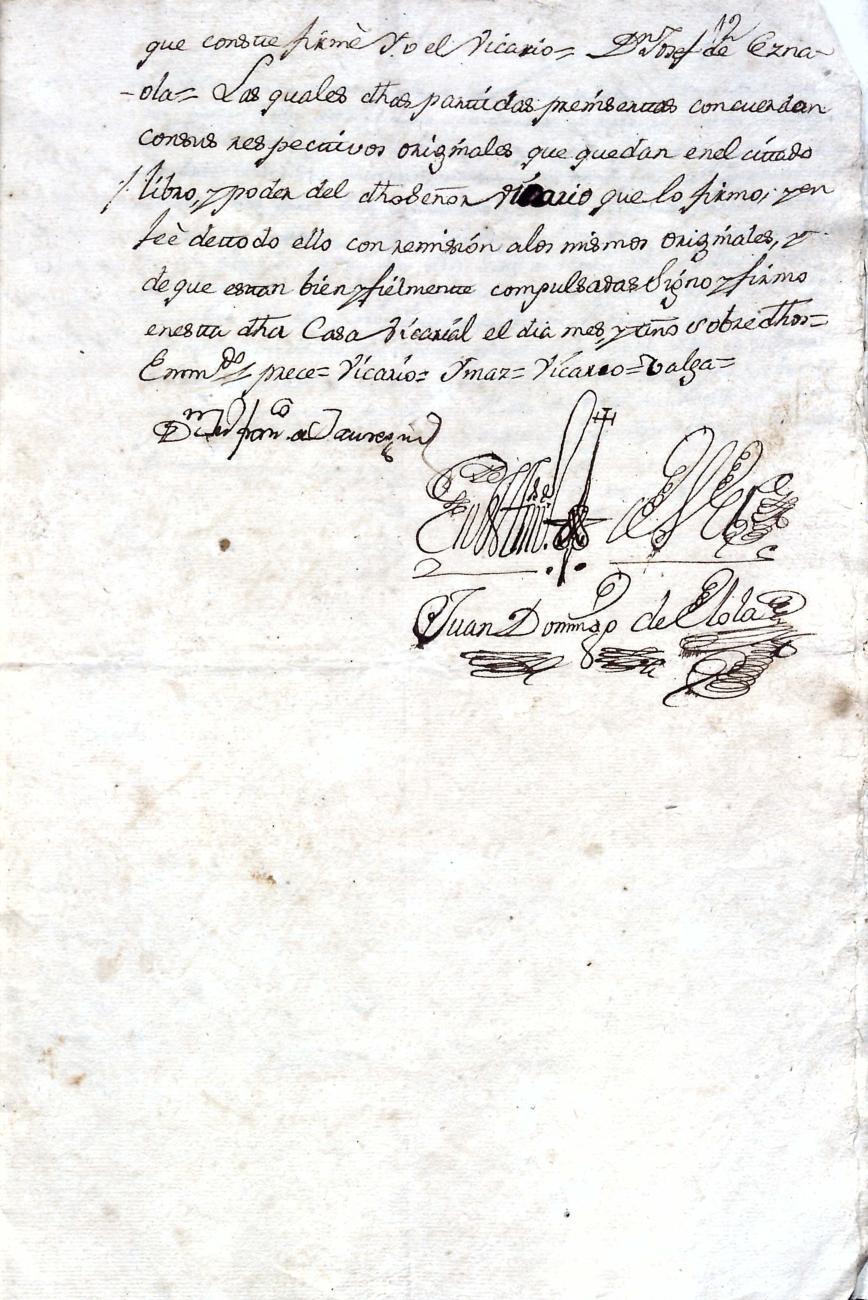 12
que conste firmè Yo el Vicario= Dn. Josef de Ezna-
-ola= Las quales dhas partidas preinsertas concuerdan
consus respectivos originales que quedan enel cittado
libro, y poder del dho Señor Vicario que lo firmo, y en
feè de ttodo ello con remisión alos mismos originales, y
de que estan bien y fielmente compulsadas Signo y firmo
enesta dha Casa Vicarial el dia mes, y año sobre dhos=
Emmdo. prece= Vicario= Ymaz= Vicario= Valga=
Dn. Franco. de Jauregui
En testimo. de Verd.
Juan Domingo de Elola